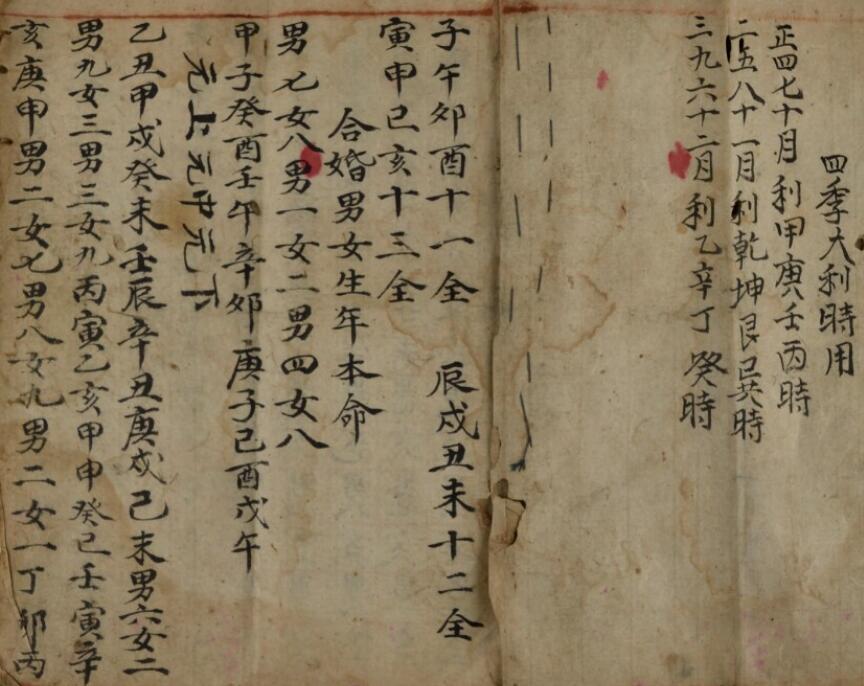 四季大利時用
正四七十月利甲庚壬丙時
二五八十一月利乾坤艮巽時
三九六十二月利乙辛丁癸時
子午卯酉十一全 辰戌丑未十二全
寅申巳亥十三全
合婚男女生年本命
男七女八男一女二男四女八
甲子癸酉壬午辛卯庚子己酉戊午
上元中元下元
乙丑甲戌癸未壬辰辛丑庚戌己未男六女二
男九女三男三女九丙寅乙亥甲申癸巳壬寅辛
亥庚申男二女七男八女九男二女一丁卯丙